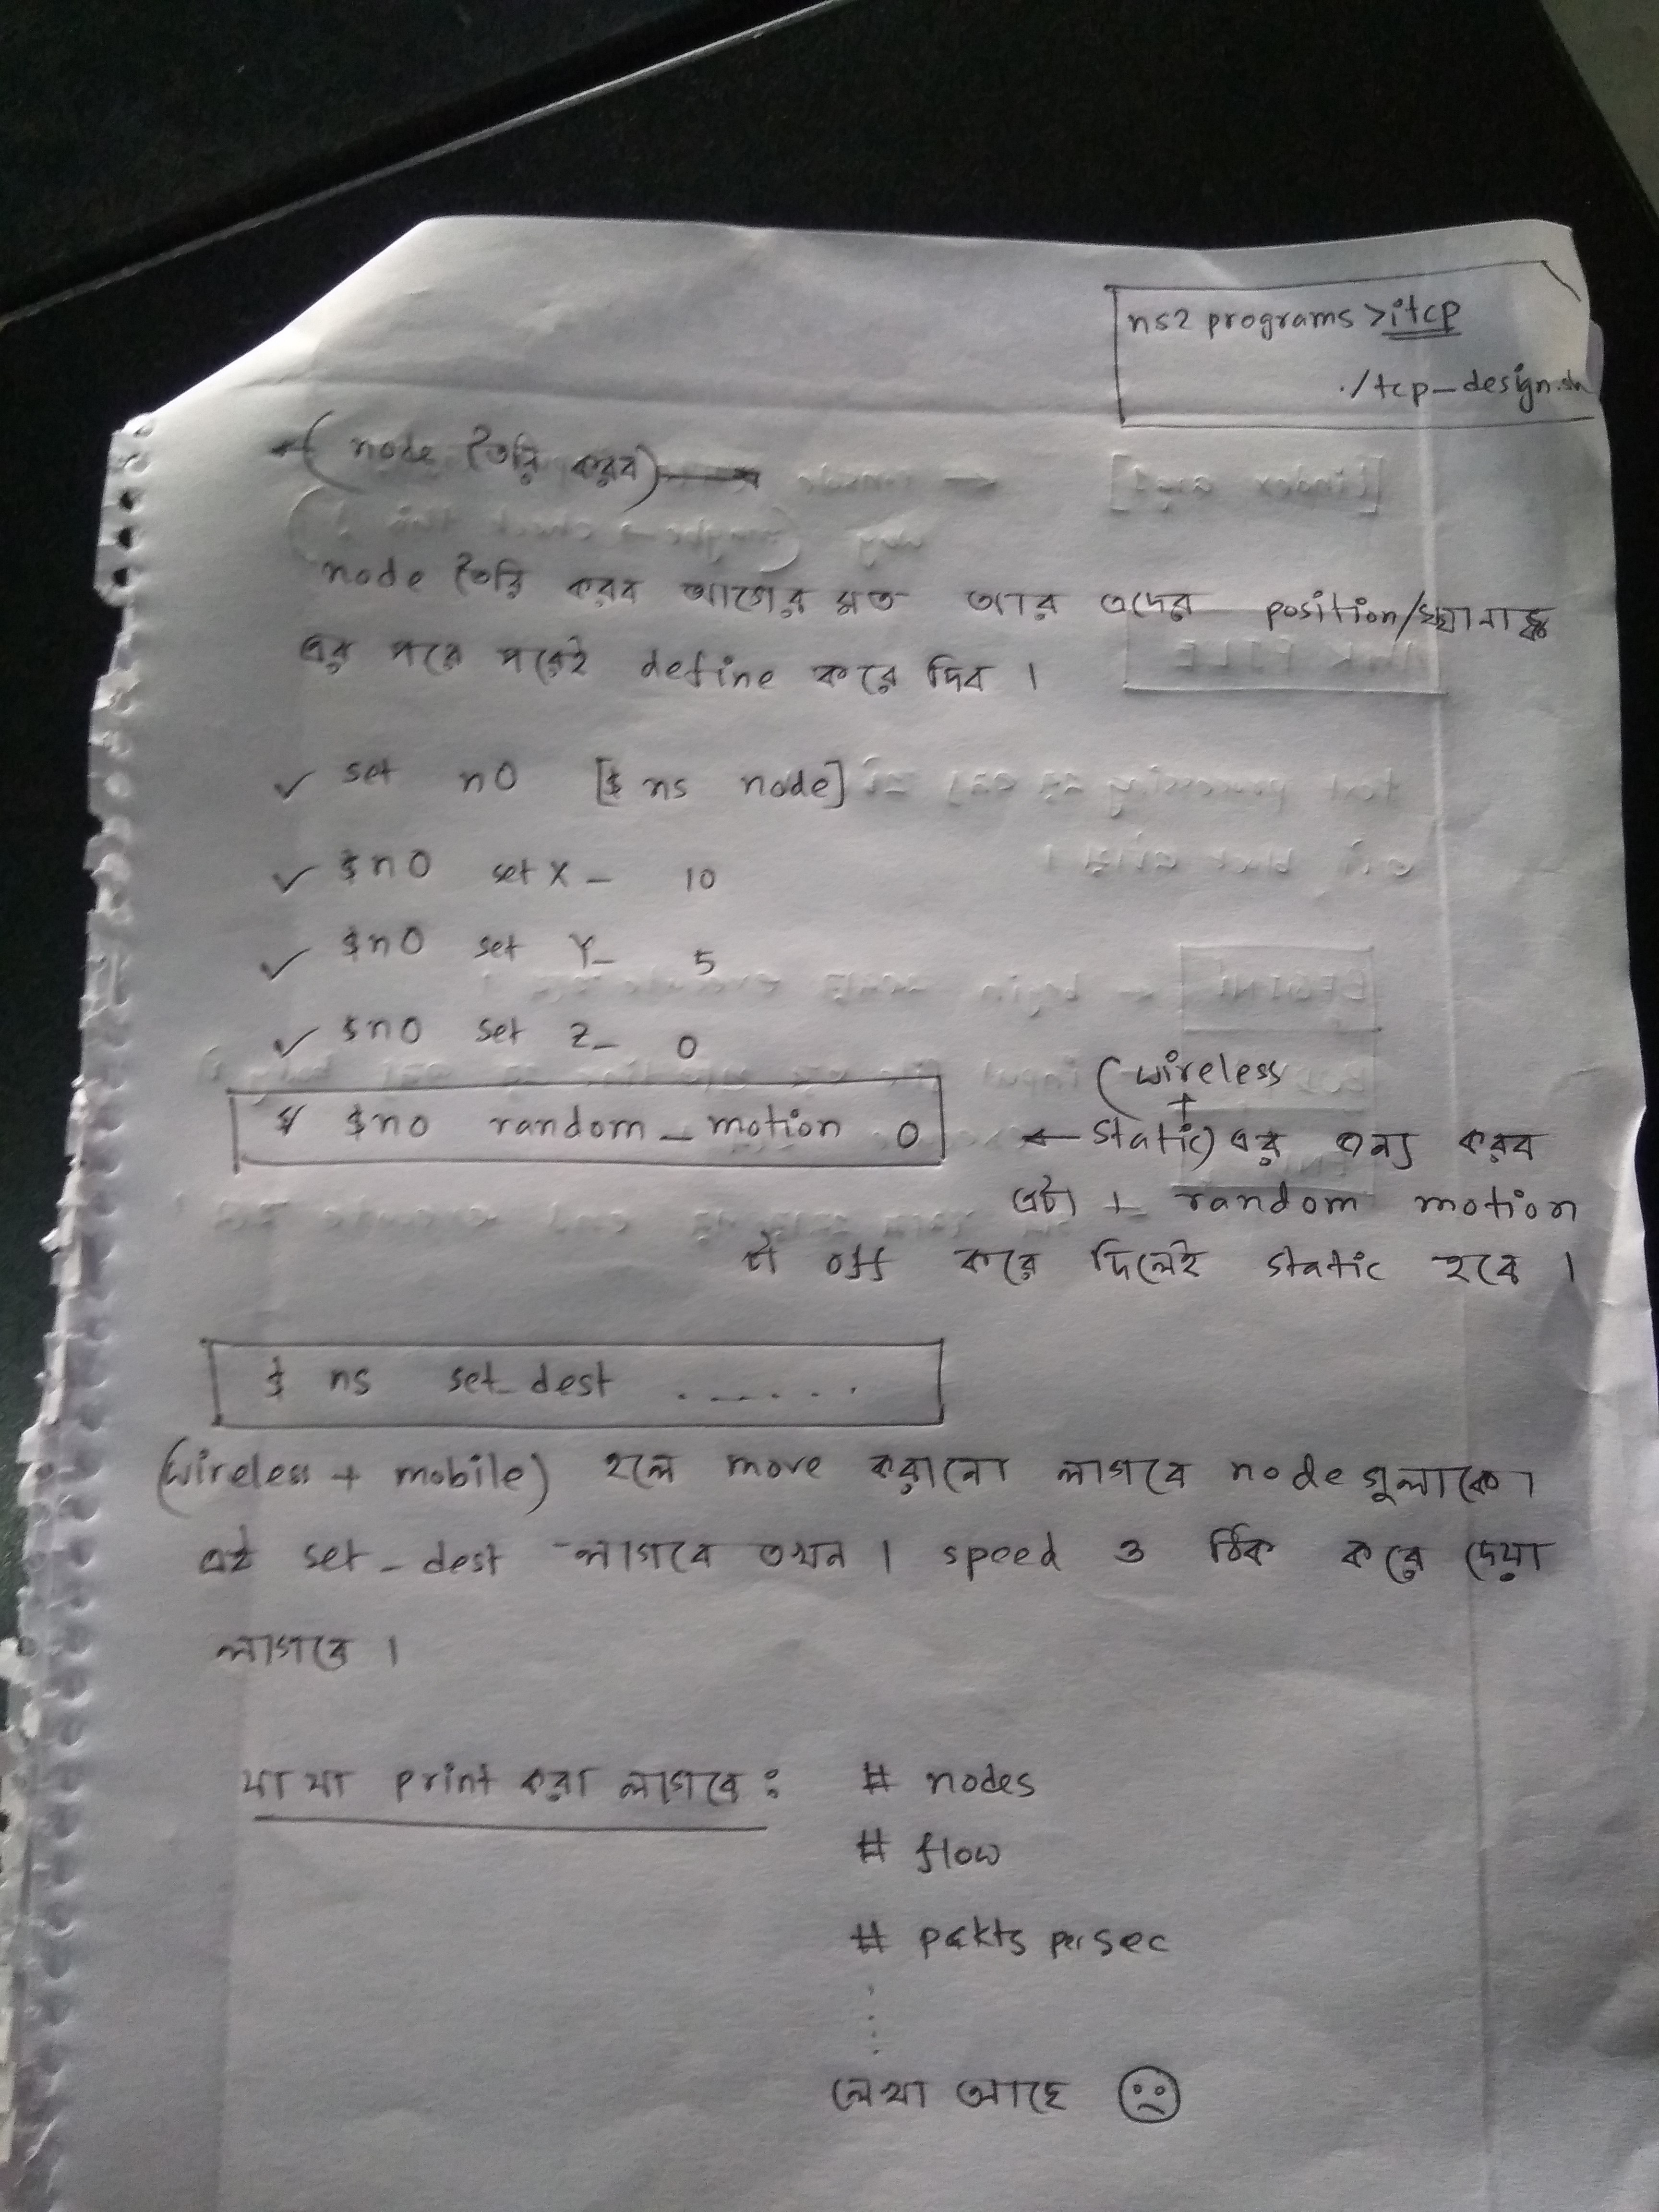 ns2 programs > itcp
./tcp_design.sh
(node তৈরি করব)
node তৈরি করব আগের মত আর এদের position/স্থানাঙ্ক
এর পরে পরেই define করে দিব ।
✓ set n0 [$ ns node]
✓ $n0 set X_ 10
✓ $n0 set Y_ 5
✓ $n0 set Z_ 0
$n0 random_motion 0
(wireless
+
← static) এর জন্য করব
এটা random motion
off করে দিলেই static হবে ।
$ ns set_dest ......
(wireless + mobile) হলে move করানো লাগবে node গুলাকে ।
এই set_dest লাগবে তখন । speed ও ঠিক করে দেয়া
লাগবে ।
যা যা print করা লাগবে : # nodes
# flow
# pckts per sec
লেখা আছে ☹